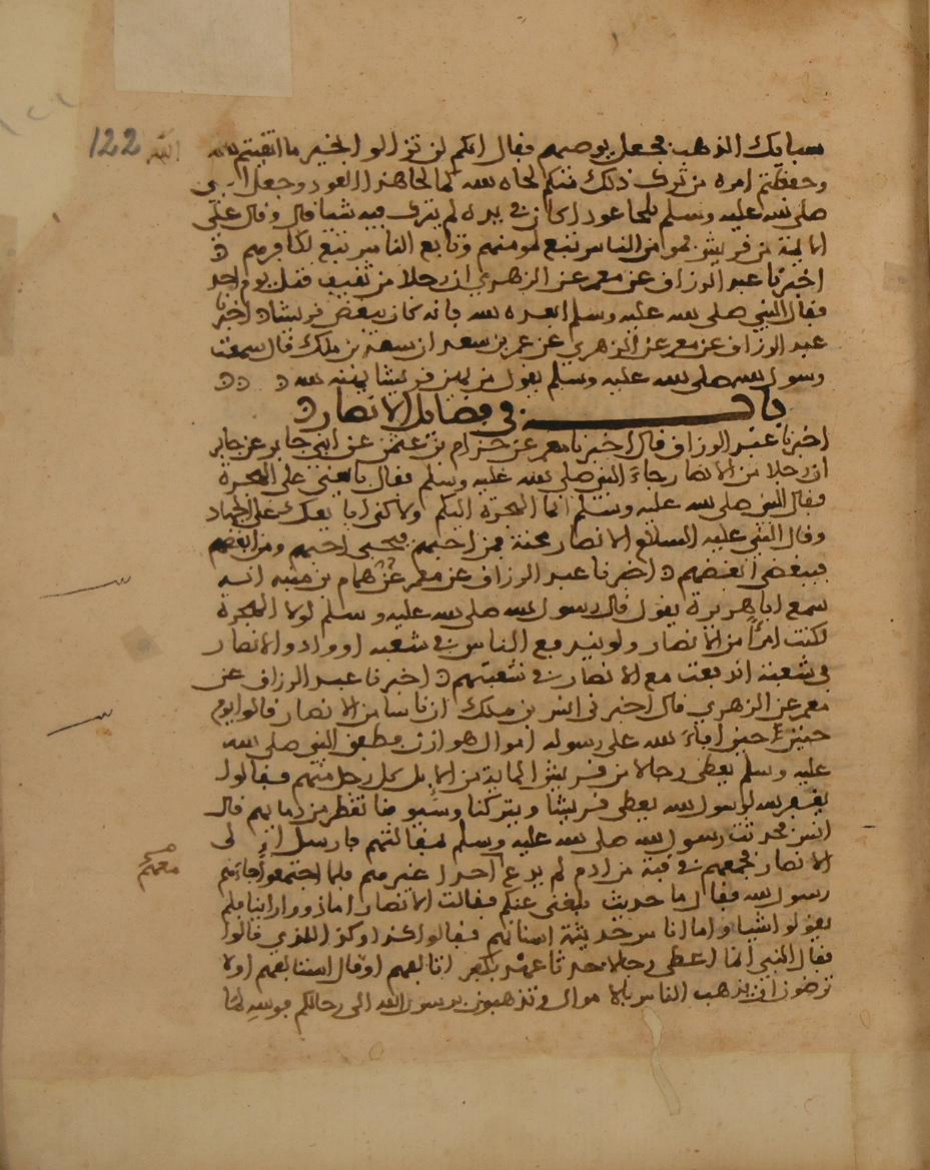 122 الله
سبايك الذهب فجعل يوصيهم فقال انكم لن تزالوا بخير ما اتقيتم الله
وحفظتم امره من ترك ذلك منكم لحاه الله كما لحا هذا العود وجعل النبي
صلى الله عليه وسلم يلحا عودا كان في يده لم يترك فيه شيا قال وقال علي
الايمة من قريش مومن الناس تبع لمومنهم وتابع الناس تبع لكافرهم
اخبرنا عبد الرزاق عن معمر عن الزهري ان رجلا من ثقيف قتل يوم احد
فقال النبي صلى الله عليه وسلم ابعده الله فانه كان يبغض قريشا اخبرنا
عبد الرزاق عن معمر عن الزهري عن عمر بن سعد ان سعد بن ملك قال سمعت
رسول الله صلى الله عليه وسلم يقول من يهن قريشا يهنه الله
باب في فضايل الانصار
اخبرنا عبد الرزاق قال اخبرنا معمر عن حزام بن عثمن عن ابني جابر عن جابر
ان رجلا من الانصار جاء النبي صلى الله عليه وسلم فقال بايعني على الهجرة
فقال النبي صلى الله عليه وسلم انما الهجرة اليكم ولاكني ابايعك على الجهاد
وقال النبي عليه السلام الانصار محنة فمن احبهم فبحبي احبهم ومن ابغضهم
فببغضي ابغضهم اخبرنا عبد الرزاق عن معمر عن همام بن منبه انه
سمع ابا هريرة يقول قال رسول الله صلى الله عليه وسلم لولا الهجرة
لكنت امرأ من الانصار ولو يندفع الناس في شعبه او واد والانصار
في شعبة اندفعت مع الانصار في شعبتهم اخبرنا عبد الرزاق عن
معمر عن الزهري قال اخبرني انس بن ملك ان ناسا من الانصار قالوا يوم
حنين حين افاء الله على رسوله اموال هوازن فطفق النبي صلى الله
عليه وسلم يعطي رجالا من قريش الماية من الابل كل رجل منهم فقالوا
يغفر الله لرسول الله يعطي قريشا ويتركنا وسيوفنا تقطر من دمايهم قال
انس فحدثت رسول الله صلى الله عليه وسلم لمقالتهم فارسل الى
الانصار فجمعهم في قبة من ادم لم يدع احدا غيرهم فلما اجتمعوا جاءهم
معهم
رسول الله فقال ما حديث بلغني عنكم فقالت الانصار اما ذووا راينا فلم
يقولوا شيا واما اناس حديثة اسنانهم فقالوا كذا وكذا للذي قالوا
فقال النبي انما اعطي رجالا حدثا عهد بكفر اتالفهم او قال استالفهم اولا
ترضون ان يذهب الناس بالاموال وتذهبون برسول الله الى رحالكم فوالله لما